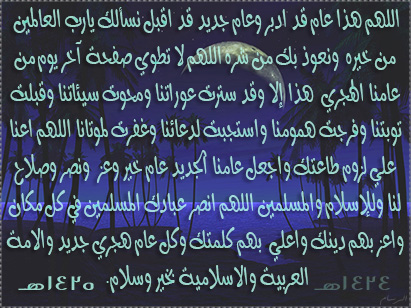 اللهم هذا عام قد ادبر وعام جديد قد اقبل نسألك يارب العالمين
من خيره ونعوذ بك من شره اللهم لا تطوي صفحة آخر يوم من
عامنا الهجري هذا إلا وقد سترت عوراتنا ومحوت سيئاتنا وقبلت
توبتنا وفرجت همومنا واستجبت لدعائنا وغفرت لموتانا اللهم اعنا
علي لزوم طاعتك واجعل عامنا الجديد عام خير وعز ونصر وصلاح
لنا وللإسلام والمسلمين اللهم انصر عبادك المسلمين في كل مكان
واعز بهم دينك واعلي بهم كلمتك وكل عام هجري جديد والامة
العربية والاسلامية بخير وسلام.
١٤٢٤هـ ١٤٢٥هـ